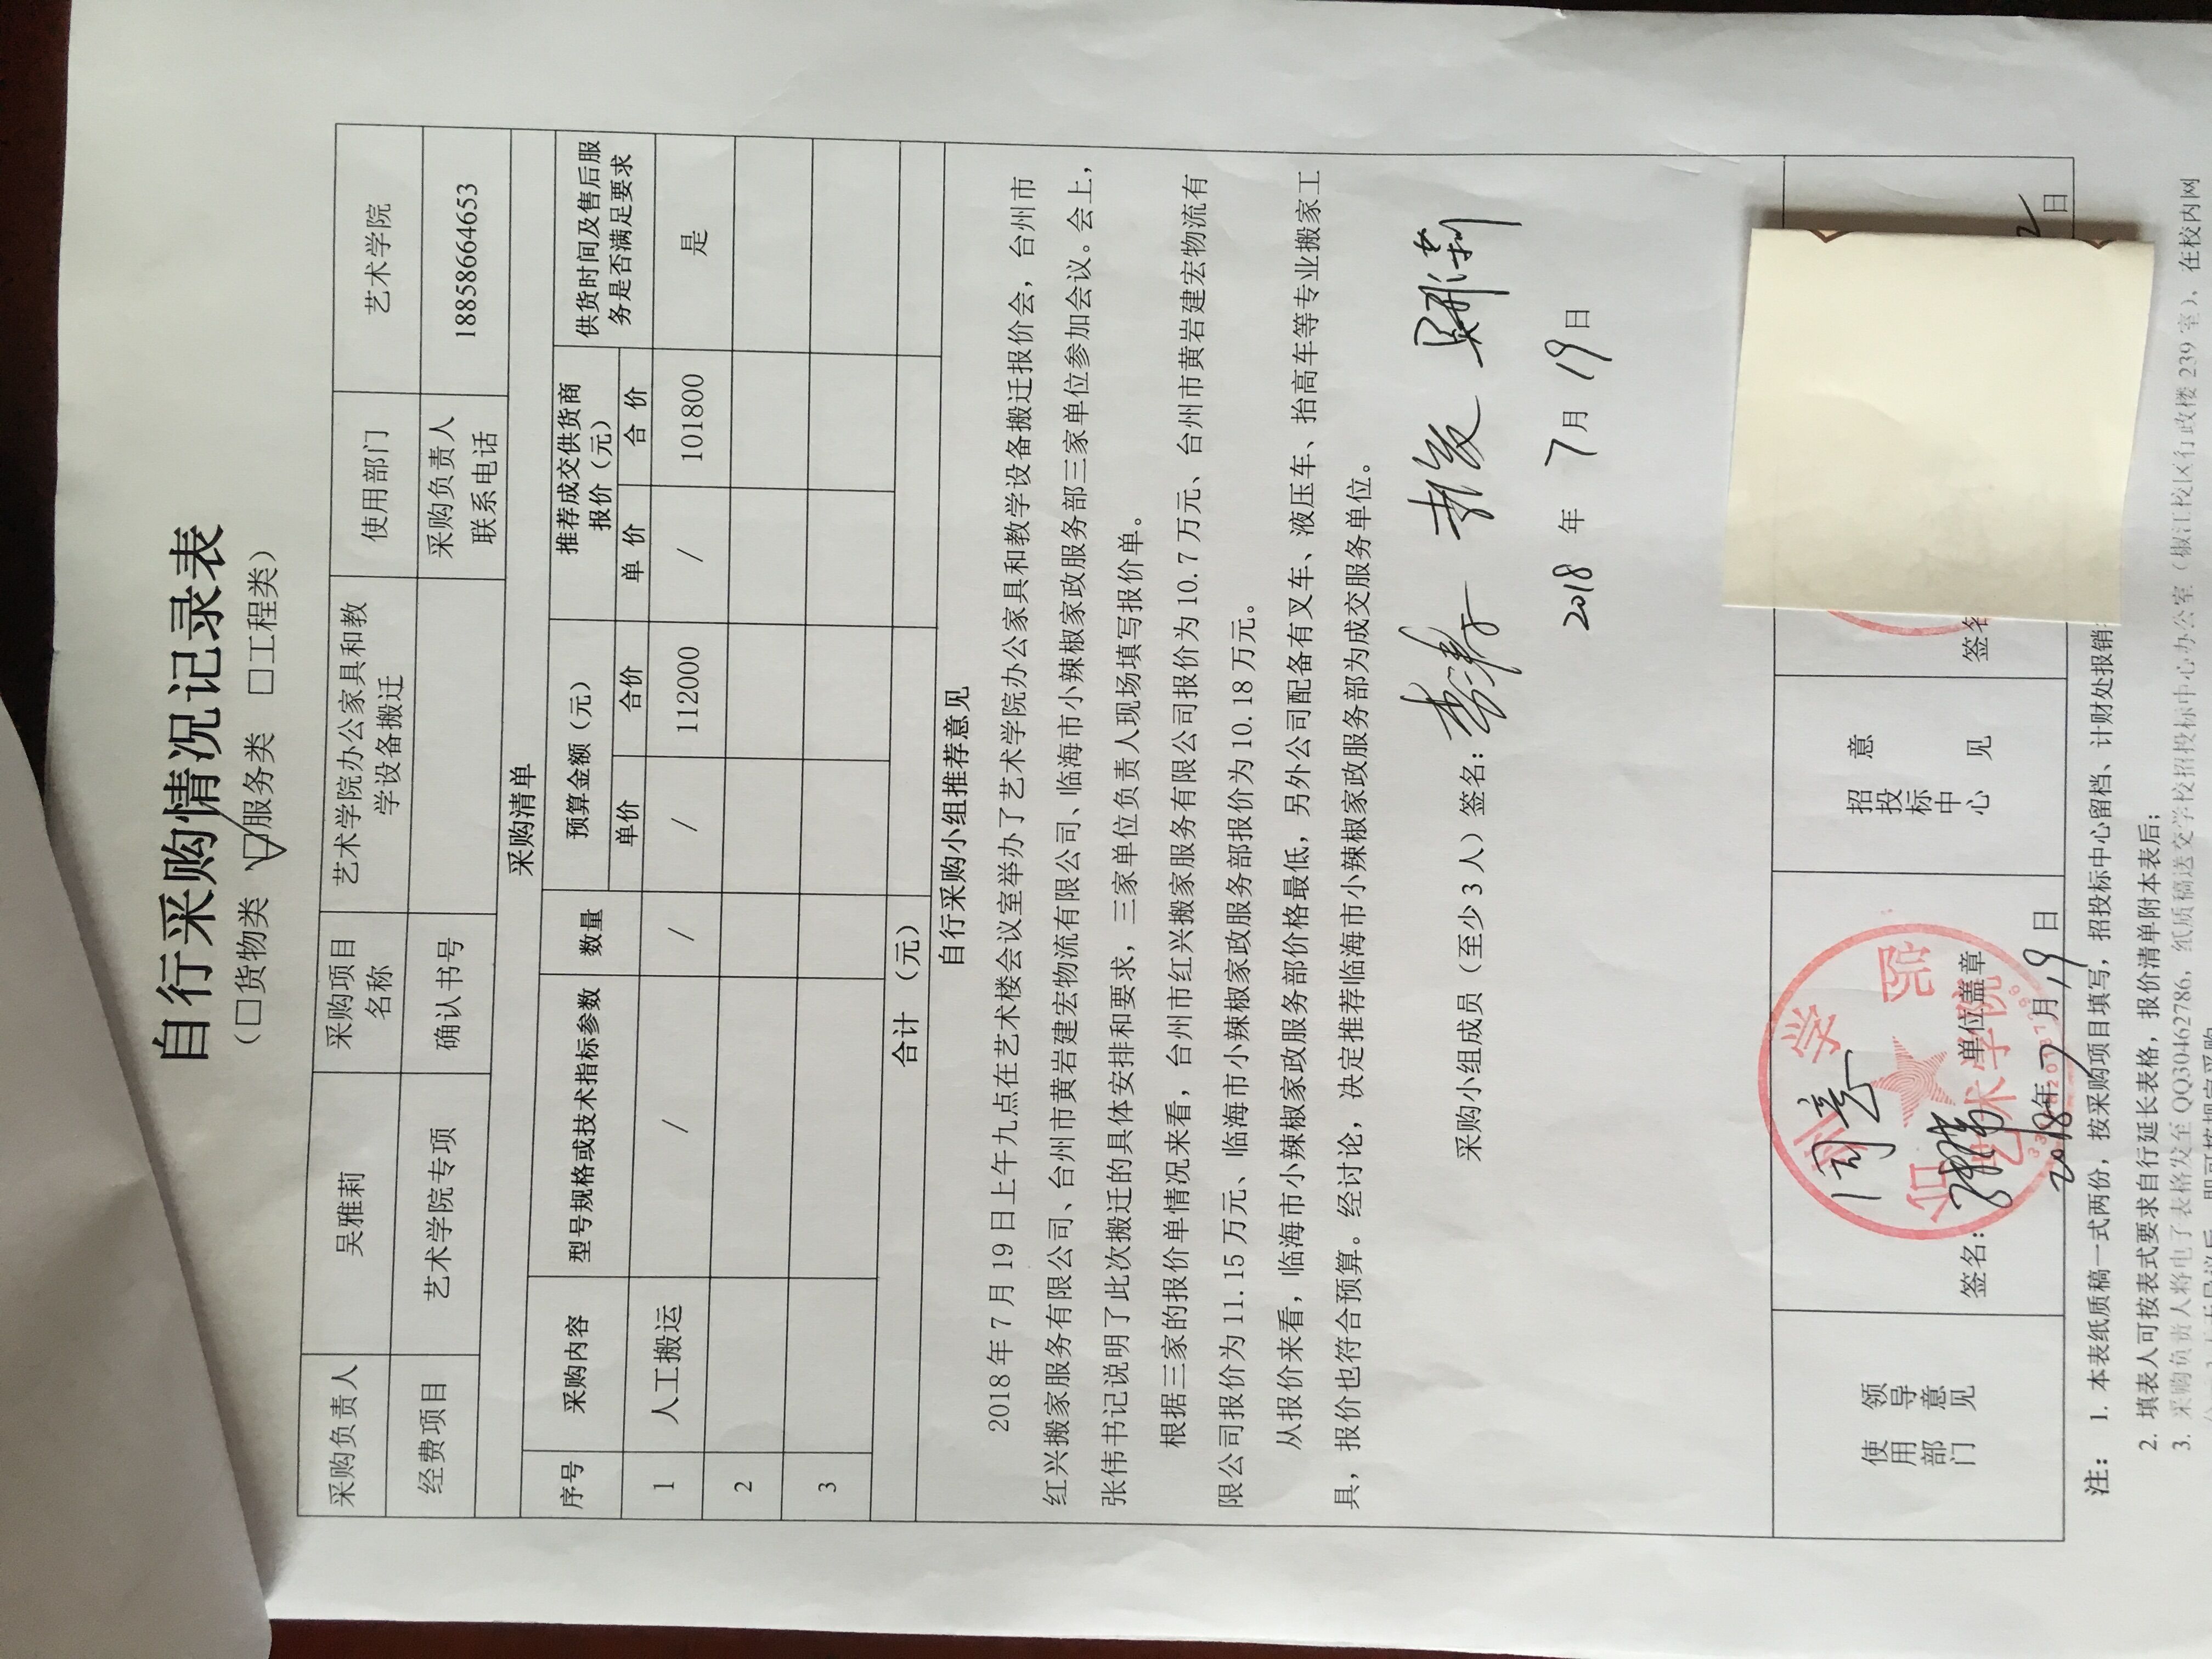 自行采购情况记录表
（□货物类 ☑服务类 □工程类）
采购负责人 吴雅莉 采购项目名称 艺术学院办公家具和教学设备搬迁 使用部门 艺术学院
经费项目 艺术学院专项 确认书号 采购负责人联系电话 18858664653
采购清单
序号 采购内容 型号规格或技术指标参数 数量 预算金额（元） 推荐成交供货商报价（元） 供货时间及售后服务是否满足要求
单价 合价 单价 合价
1 人工搬运 / / / 112000 / 101800 是
2
3
合计（元）
自行采购小组推荐意见
2018年7月19日上午九点在艺术楼会议室举办了艺术学院办公家具和教学设备搬迁报价会，台州市
红兴搬家服务有限公司、台州市黄岩建宏物流有限公司、临海市小辣椒家政服务部三家单位参加会议。会上，
张伟书记说明了此次搬迁的具体安排和要求，三家单位负责人现场填写报价单。
根据三家的报价单情况来看，台州市红兴搬家服务有限公司报价为10.7万元、台州市黄岩建宏物流有
限公司报价为11.15万元、临海市小辣椒家政服务部报价为10.18万元。
从报价来看，临海市小辣椒家政服务部价格最低，另外公司配备有叉车、液压车、抬高车等专业搬家工
具，报价也符合预算。经讨论，决定推荐临海市小辣椒家政服务部为成交服务单位。
采购小组成员（至少3人）签名：
2018年7月19日
使用部门领导意见
同意
签名： 单位盖章
2018年7月19日
艺术学院
招投标中心意见
签名
日
注：1. 本表纸质稿一式两份，按采购项目填写，招投标中心留档、计财处报销
2. 填表人可按表式要求自行延长表格，报价清单附本表后；
3. 采购负责人将电子表格发至QQ30462786，纸质稿送交学校招投标中心办公室（椒江校区行政楼239室），在校内网